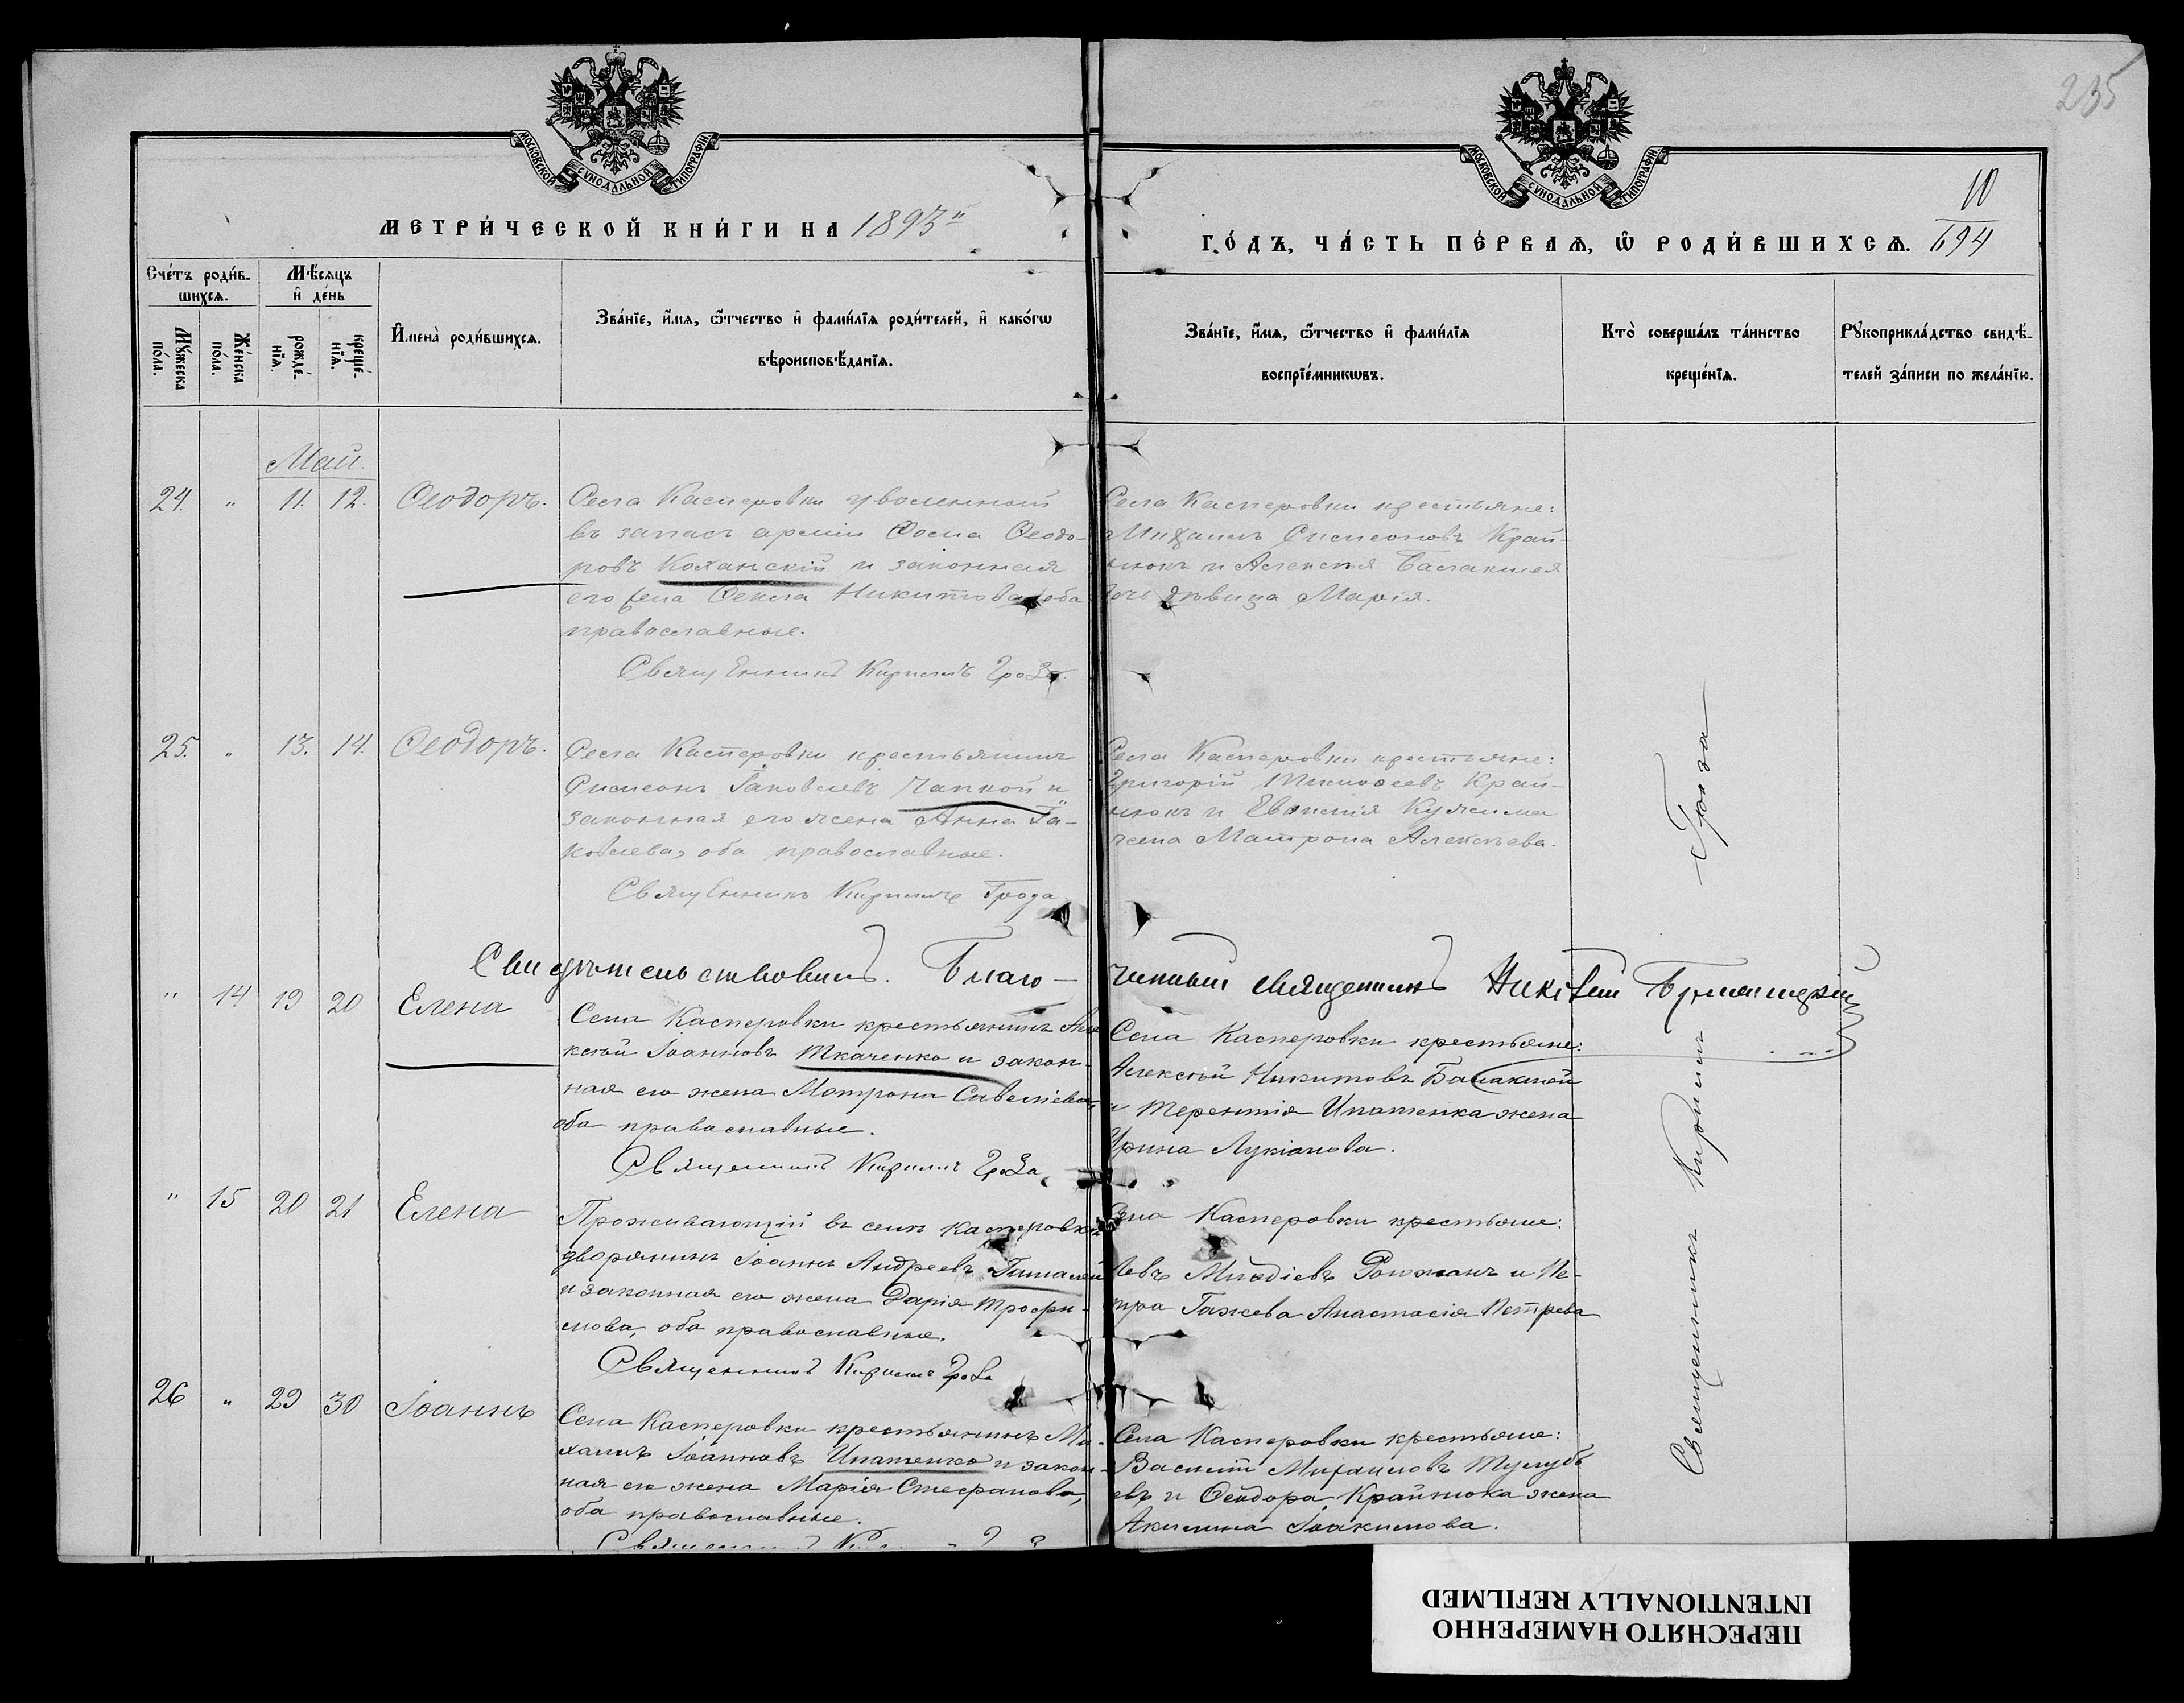 235
МОСКОВСКОЙ СѴНОДАЛЬНОЙ ТИПОГРАФІИ
МОСКОВСКОЙ СѴНОДАЛЬНОЙ ТИПОГРАФІИ
МЕТРИ́ЧЕСКОЙ КНИ́ГИ НА 1893й
ГО́ДЪ, ЧА́СТЬ ПЕ́РВАѦ, Ѽ РОДИ́ВШИХСѦ.
10
694
Сче́тъ роди́вшихсѧ.
Мꙋ́жеска по́ла.
Же́нска по́ла.
Мѣ́сѧцъ и҆ де́нь
рожде́нїѧ.
креще́нїѧ.
И҆мена̀ роди́вшихсѧ.
Зва́нїе, и҆́мѧ, ѻ҆́тчество и҆ фами́лїѧ роди́телей, и҆ како́гѡ
вѣроисповѣ́данїѧ.
Зва́нїе, и҆́мѧ, ѻ҆́тчество и҆ фами́лїѧ
воспрїе́мникѡвъ.
Кто̀ соверша́лъ та́инство
креще́нїѧ.
Рꙋкоприкла́дство свидѣ́-
телей за́писи по жела́нїю.
Май.
24. " 11. 12. Ѳеодоръ.
Села Касперовки уволенный
въ запасъ арміи Ѳома Ѳеодо-
ровъ Коханскій и законная
его жена Ѳекла Никитова, оба
православные.
Священникъ Кириллъ Гроза
Села Касперовки крестьяне:
Михаилъ Симеоновъ Край-
нюкъ и Алексѣя Балаклея
дочь дѣвица Марія.
25. " 13. 14. Ѳеодоръ.
Села Касперовки крестьянинъ
Симеонъ Іаковлевъ Чапкой и
законная его жена Анна Іа-
ковлева, оба православные.
Священникъ Кириллъ Гроза
Села Касперовки крестьяне:
Григорій Тимоѳеевъ Край-
нюкъ и Евѳимія
жена Матрона Алексѣева.
Свидѣтельствовалъ. Благо-
чинный священникъ
" 14 19 20 Елена
Села Касперовки крестьянинъ Але-
ксѣй Іоанновъ Ткаченко и закон-
ная его жена Матрона Савеліева,
оба православные.
Священникъ Кириллъ Гроза
Села Касперовки крестьяне:
Алексѣй Никитовъ Балаклей
и Терентія Ипатенка жена
Ирина Лукіанова.
" 15 20 21 Елена
Проживающій въ селѣ Касперовкѣ
дворянинъ Іоаннъ Андреевъ
и законная его жена Дарія Трофи-
мова, оба православные.
Священникъ Кириллъ Гроза
Села Касперовки крестьяне:
и Пе-
тра Гажева Анастасія Петрова
26 " 29 30 Іоаннъ
Села Касперовки крестьянинъ Ми-
хаилъ Іоанновъ Ипатенко и закон-
ная его жена Марія Стефанова,
оба православные.
Села Касперовки крестьяне:
Василій Михаиловъ Тулубъ
евъ и Ѳеодора Крайнюка жена
Акилина Іоакимова.
Священникъ Кириллъ Гроза
ПЕРЕСНЯТО НАМЕРЕННО
INTENTIONALLY REFILMED